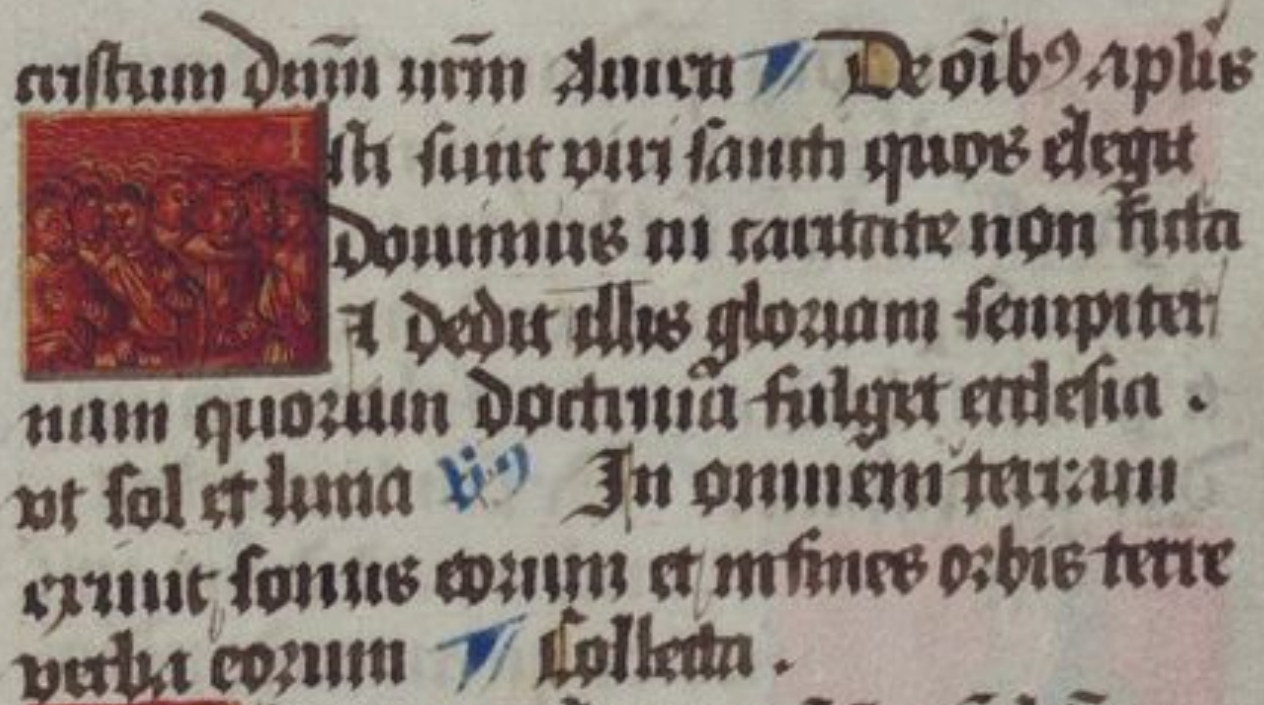 cristum dnm̄ nrm̄ Amen De oīb⁹ aplīs
Isti sunt viri sancti quos elegit
Dominus in caritate non ficta
⁊ dedit illis gloriam sempiter
nam quorum doctrina fulget ecclesia .
vt sol et luna v̉s⁹ In omnem terram
exiuit sonus eorum et in fines orbis terre
verba eorum Collecta .